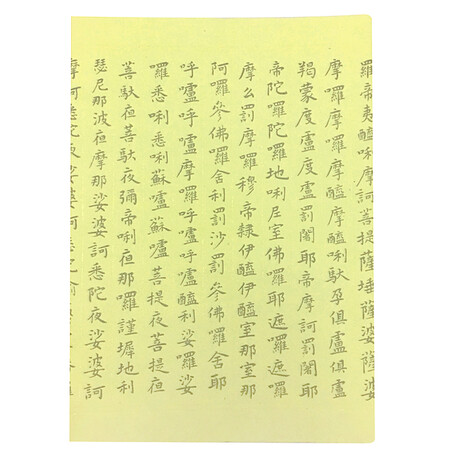 羅帝夷醯唎摩訶菩提薩埵薩婆薩婆
摩囉摩囉摩醯摩醯唎馱孕俱盧俱盧
羯蒙度盧度盧罰闍耶帝摩訶罰闍耶
帝陀囉陀囉地唎尼室佛囉耶遮囉遮囉
摩么罰摩囉穆帝隸伊醯伊醯室那室那
阿囉參佛囉舍利罰沙罰參佛囉舍耶
呼嚧呼嚧摩囉呼嚧呼嚧醯利娑囉娑
囉悉唎悉唎蘇嚧蘇嚧菩提夜菩提夜
菩馱夜菩馱夜彌帝唎夜那囉謹墀地利
瑟尼那波夜摩那娑婆訶悉陀夜娑婆訶
摩訶悉陀夜娑婆訶悉陀喻